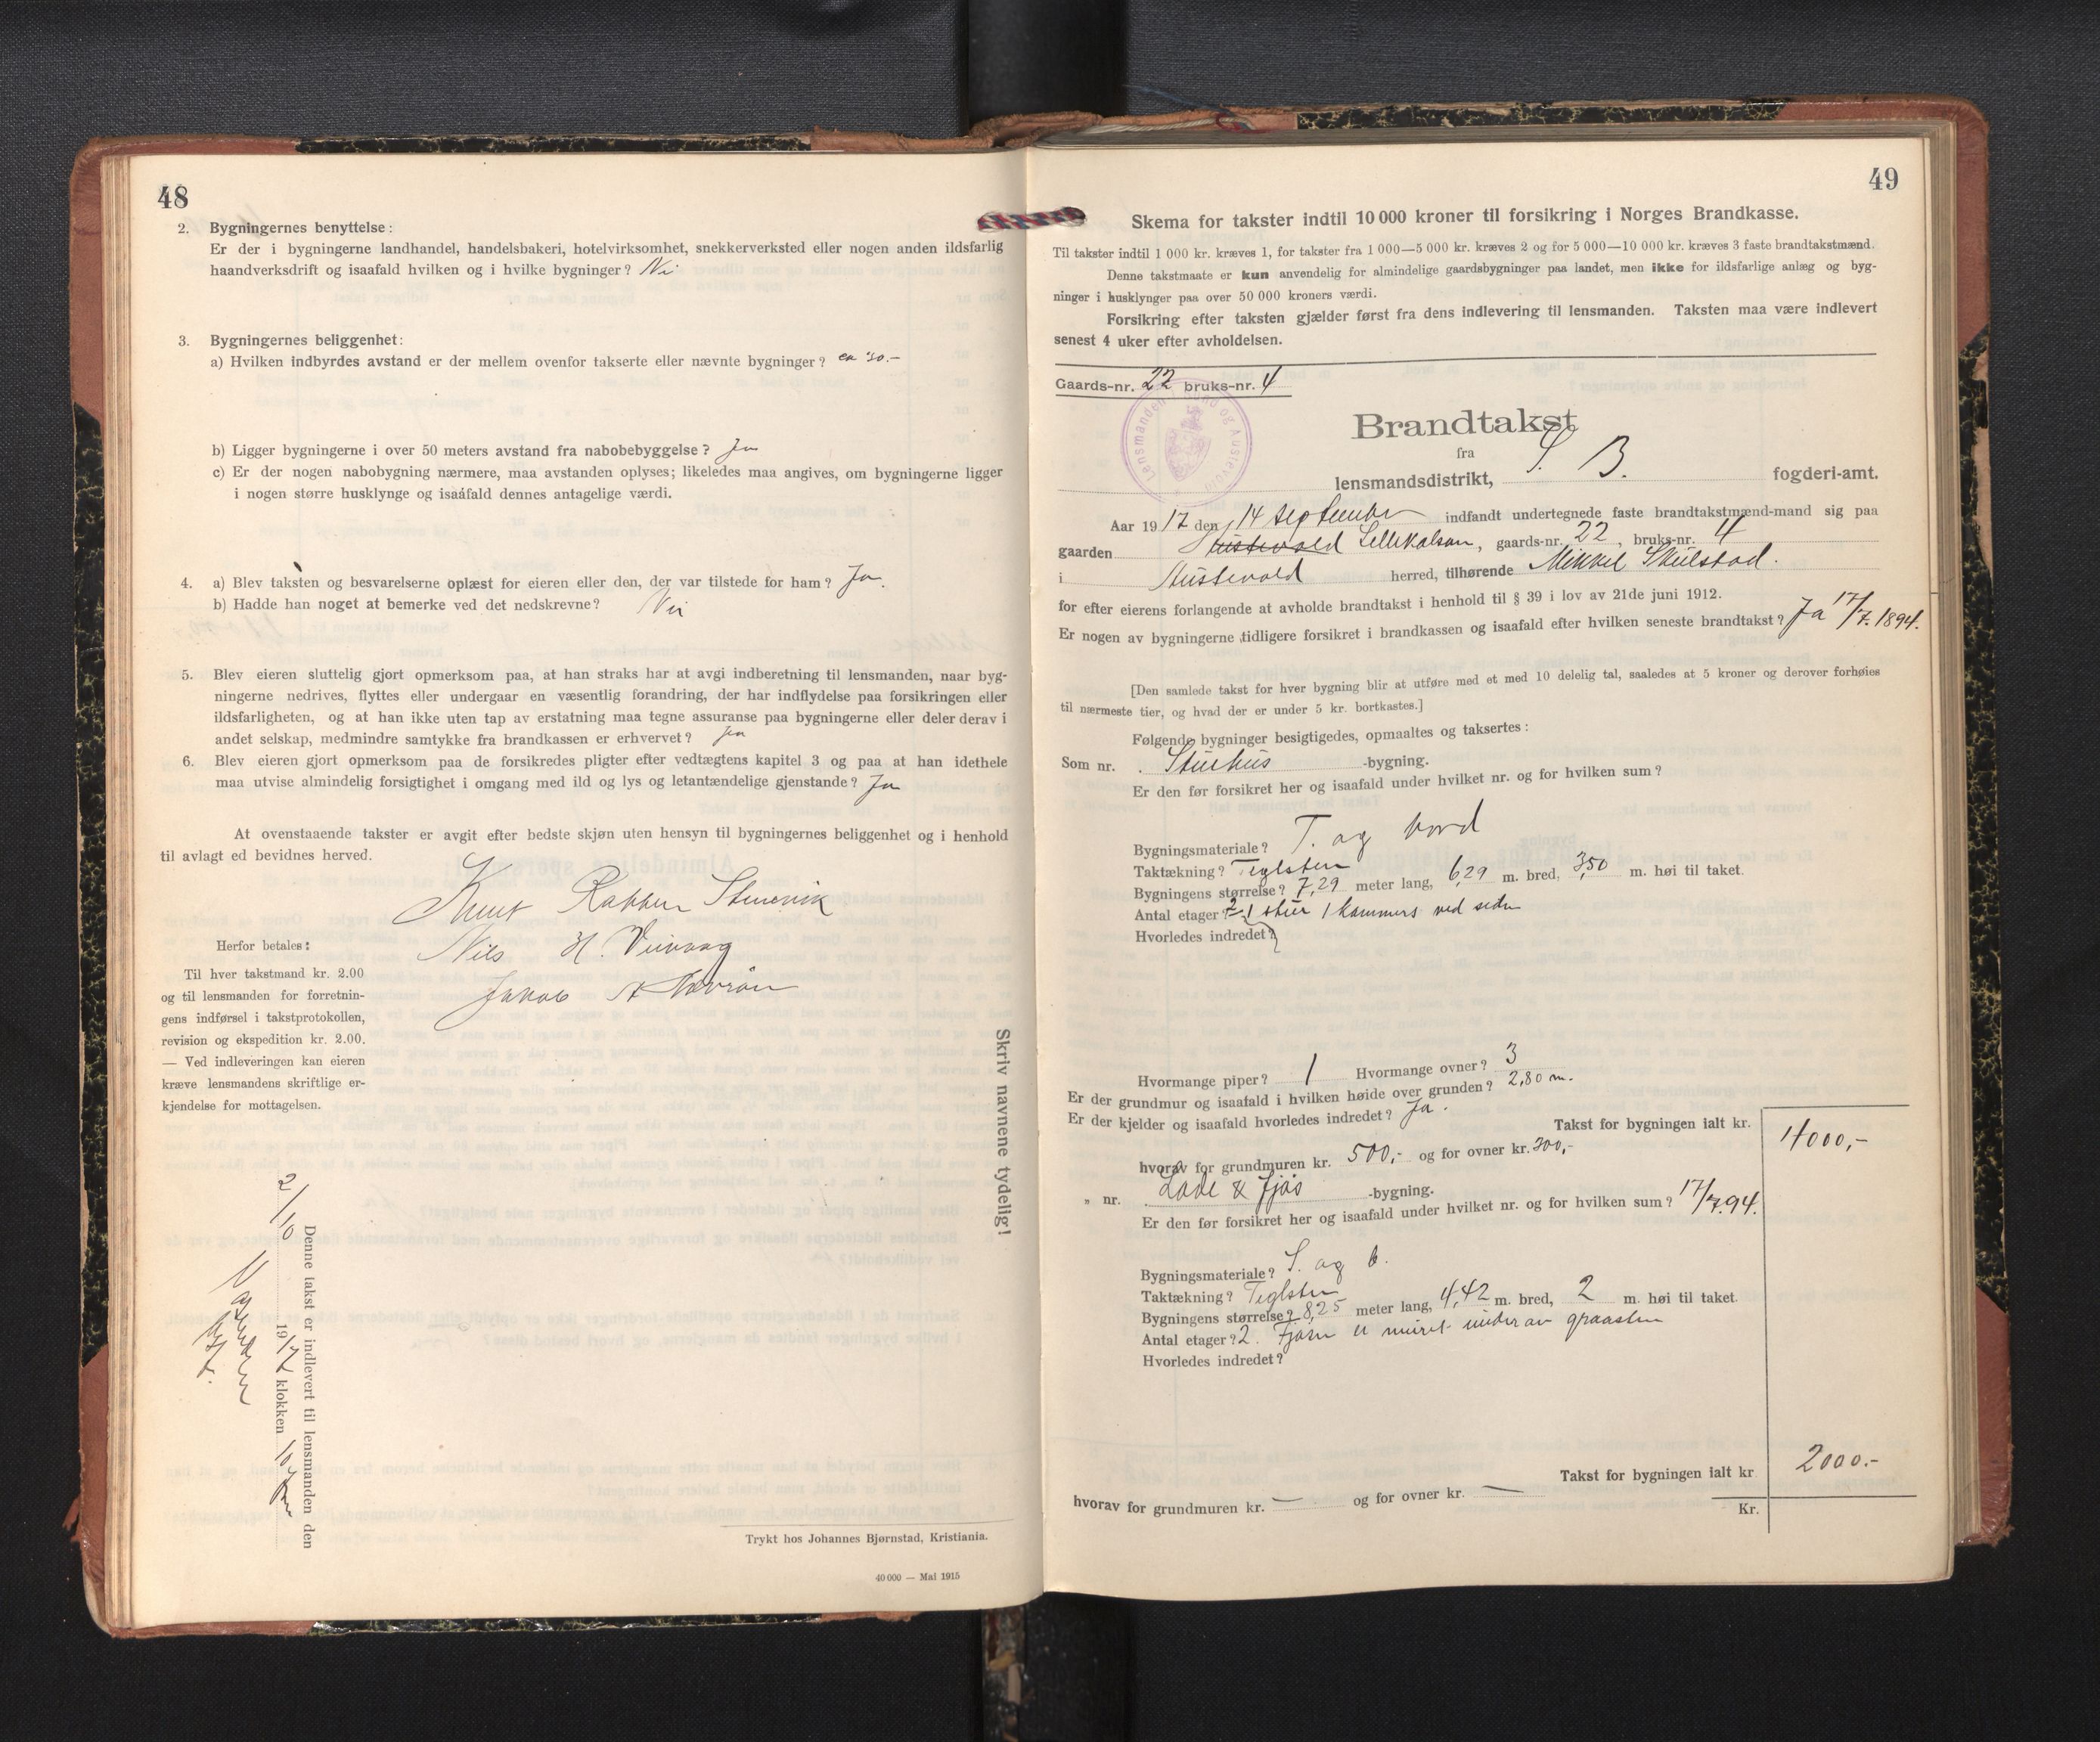 48
2. Bygningernes benyttelse:
Er der i bygningerne landhandel, handelsbakeri, hotelvirksomhet, snekkerverksted eller nogen anden ildsfarlig
haandverksdrift og isaafald hvilken og i hvilke bygninger? Nei
3. Bygningernes beliggenhet:
a) Hvilken indbyrdes avstand er der mellem ovenfor takserte eller nævnte bygninger? ca 30.-
b) Ligger bygningerne i over 50 meters avstand fra nabobebyggelse? Ja
c) Er der nogen nabobygning nærmere, maa avstanden oplyses; likeledes maa angives, om bygningerne ligger
i nogen større husklynge og isaafald dennes antagelige værdi.
4. a) Blev taksten og besvarelserne oplæst for eieren eller den, der var tilstede for ham? Ja.
b) Hadde han noget at bemerke ved det nedskrevne? Nei
5. Blev eieren sluttelig gjort opmerksom paa, at han straks har at avgi indberetning til lensmanden, naar byg-
ningerne nedrives, flyttes eller undergaar en væsentlig forandring, der har indflydelse paa forsikringen eller
ildsfarligheten, og at han ikke uten tap av erstatning maa tegne assuranse paa bygningerne eller deler derav i
andet selskap, medmindre samtykke fra brandkassen er erhvervet? Ja
6. Blev eieren gjort opmerksom paa de forsikredes pligter efter vedtægtens kapitel 3 og paa at han idethele
maa utvise almindelig forsigtighet i omgang med ild og lys og letantændelige gjenstande? Ja
At ovenstaaende takster er avgit efter bedste skjøn uten hensyn til bygningernes beliggenhet og i henhold
til avlagt ed bevidnes herved.
Knut Rabben Stenevik
Nils H. Veivaag
Jakob A Havrøen
Herfor betales:
Til hver takstmand kr. 2.00
og til lensmanden for forretnin-
gens indførsel i takstprotokollen,
revision og ekspedition kr. 2.00.
— Ved indleveringen kan eieren
kræve lensmandens skriftlige er-
kjendelse for mottagelsen.
Skriv navnene tydelig!
Denne takst er indlevert til lensmanden den
2/10 1917 klokken 10 fm
Trykt hos Johannes Bjørnstad, Kristiania.
40 000 — Mai 1915
49
Skema for takster indtil 10 000 kroner til forsikring i Norges Brandkasse.
Til takster indtil 1 000 kr. kræves 1, for takster fra 1 000—5 000 kr. kræves 2 og for 5 000—10 000 kr. kræves 3 faste brandtakstmænd.
Denne takstmaate er kun anvendelig for almindelige gaardsbygninger paa landet, men ikke for ildsfarlige anlæg og byg-
ninger i husklynger paa over 50 000 kroners værdi.
Forsikring efter taksten gjælder først fra dens indlevering til lensmanden. Taksten maa være indlevert
senest 4 uker efter avholdelsen.
Gaards-nr. 22 bruks-nr. 4
Lensmanden i Sund og Austevold
Brandtakst
fra
lensmandsdistrikt, S. B. fogderi-amt.
Aar 1917 den 14 September indfandt undertegnede faste brandtakstmænd-mand sig paa
gaarden Austevold Lillekalsøen, gaards-nr. 22, bruks-nr. 4
i Austevold herred, tilhørende Mikkel Skulstad.
for efter eierens forlangende at avholde brandtakst i henhold til § 39 i lov av 21de juni 1912.
Er nogen av bygningerne tidligere forsikret i brandkassen og isaafald efter hvilken seneste brandtakst? Ja 17/7. 1894.
[Den samlede takst for hver bygning blir at utføre med et med 10 delelig tal, saaledes at 5 kroner og derover forhøies
til nærmeste tier, og hvad der er under 5 kr. bortkastes.]
Følgende bygninger besigtigedes, opmaaltes og taksertes:
Som nr. Stuehus -bygning.
Er den før forsikret her og isaafald under hvilket nr. og for hvilken sum?
Bygningsmateriale? T. og bord
Taktækning? Teglsten
Bygningens størrelse? 7,29 meter lang, 6,29 m. bred, 3,50 m. høi til taket.
Antal etager? 2 1 stue 1 kammers ved siden
Hvorledes indredet?
Hvormange piper? 1 Hvormange ovner? 3
Er der grundmur og isaafald i hvilken høide over grunden? 2,80 m.
Er der kjelder og isaafald hvorledes indredet? Ja.
Takst for bygningen ialt kr. 4000,-
hvorav for grundmuren kr. 500,- og for ovner kr. 300,-
„ nr. Løde & fjøs -bygning.
Er den før forsikret her og isaafald under hvilket nr. og for hvilken sum? 17/7.94.
Bygningsmateriale? S. og b.
Taktækning? Teglsten
Bygningens størrelse? 8,25 meter lang, 4,42 m. bred, 2 m. høi til taket.
Antal etager? 2. Fjøsen er muret under av graasten
Hvorledes indredet?
Takst for bygningen ialt kr 2000.-
hvorav for grundmuren kr. — og for ovner kr. —
Kr.